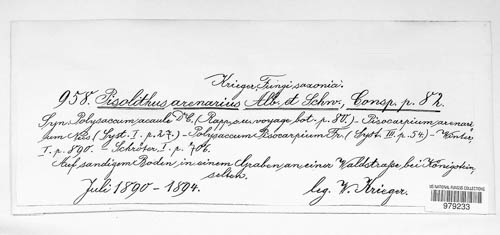 Krieger, Fungi saxonici.
958. Pisolithus arenarius Alb. et Schw., Consp. p. 82.
Syn. Polysaccum acaule DC. (Rapp. ou voyage bot. p. 80.) - Pisocarpium arenari-
um Nees (Syst. I. p. 27.) - Polysaccum Pisocarpium Fr. (Syst. III. p. 54.) - Winter,
I. p. 890. - Schröter, I. p. 702.
Auf sandigem Boden, in einem Graben, an einer Waldstraße, bei Königstein,
selten.
Juli 1890-1894.
leg. W. Krieger.
US NATIONAL FUNGUS COLLECTIONS
979233